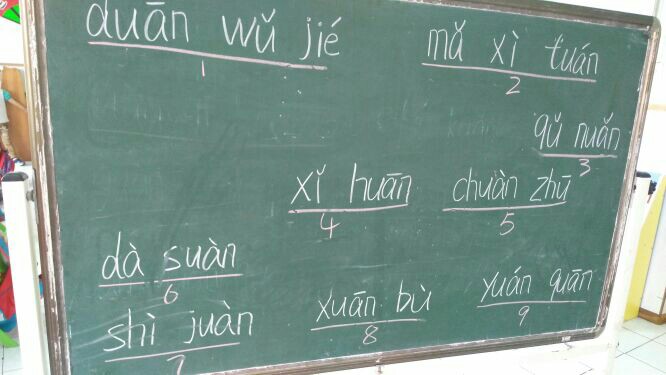 duān wǔ jié
1
mǎ xì tuán
2
qǔ nuǎn
3
xǐ huān
4
chuàn zhū
5
dà suàn
6
shì juàn
7
xuān bù
8
yuán quān
9